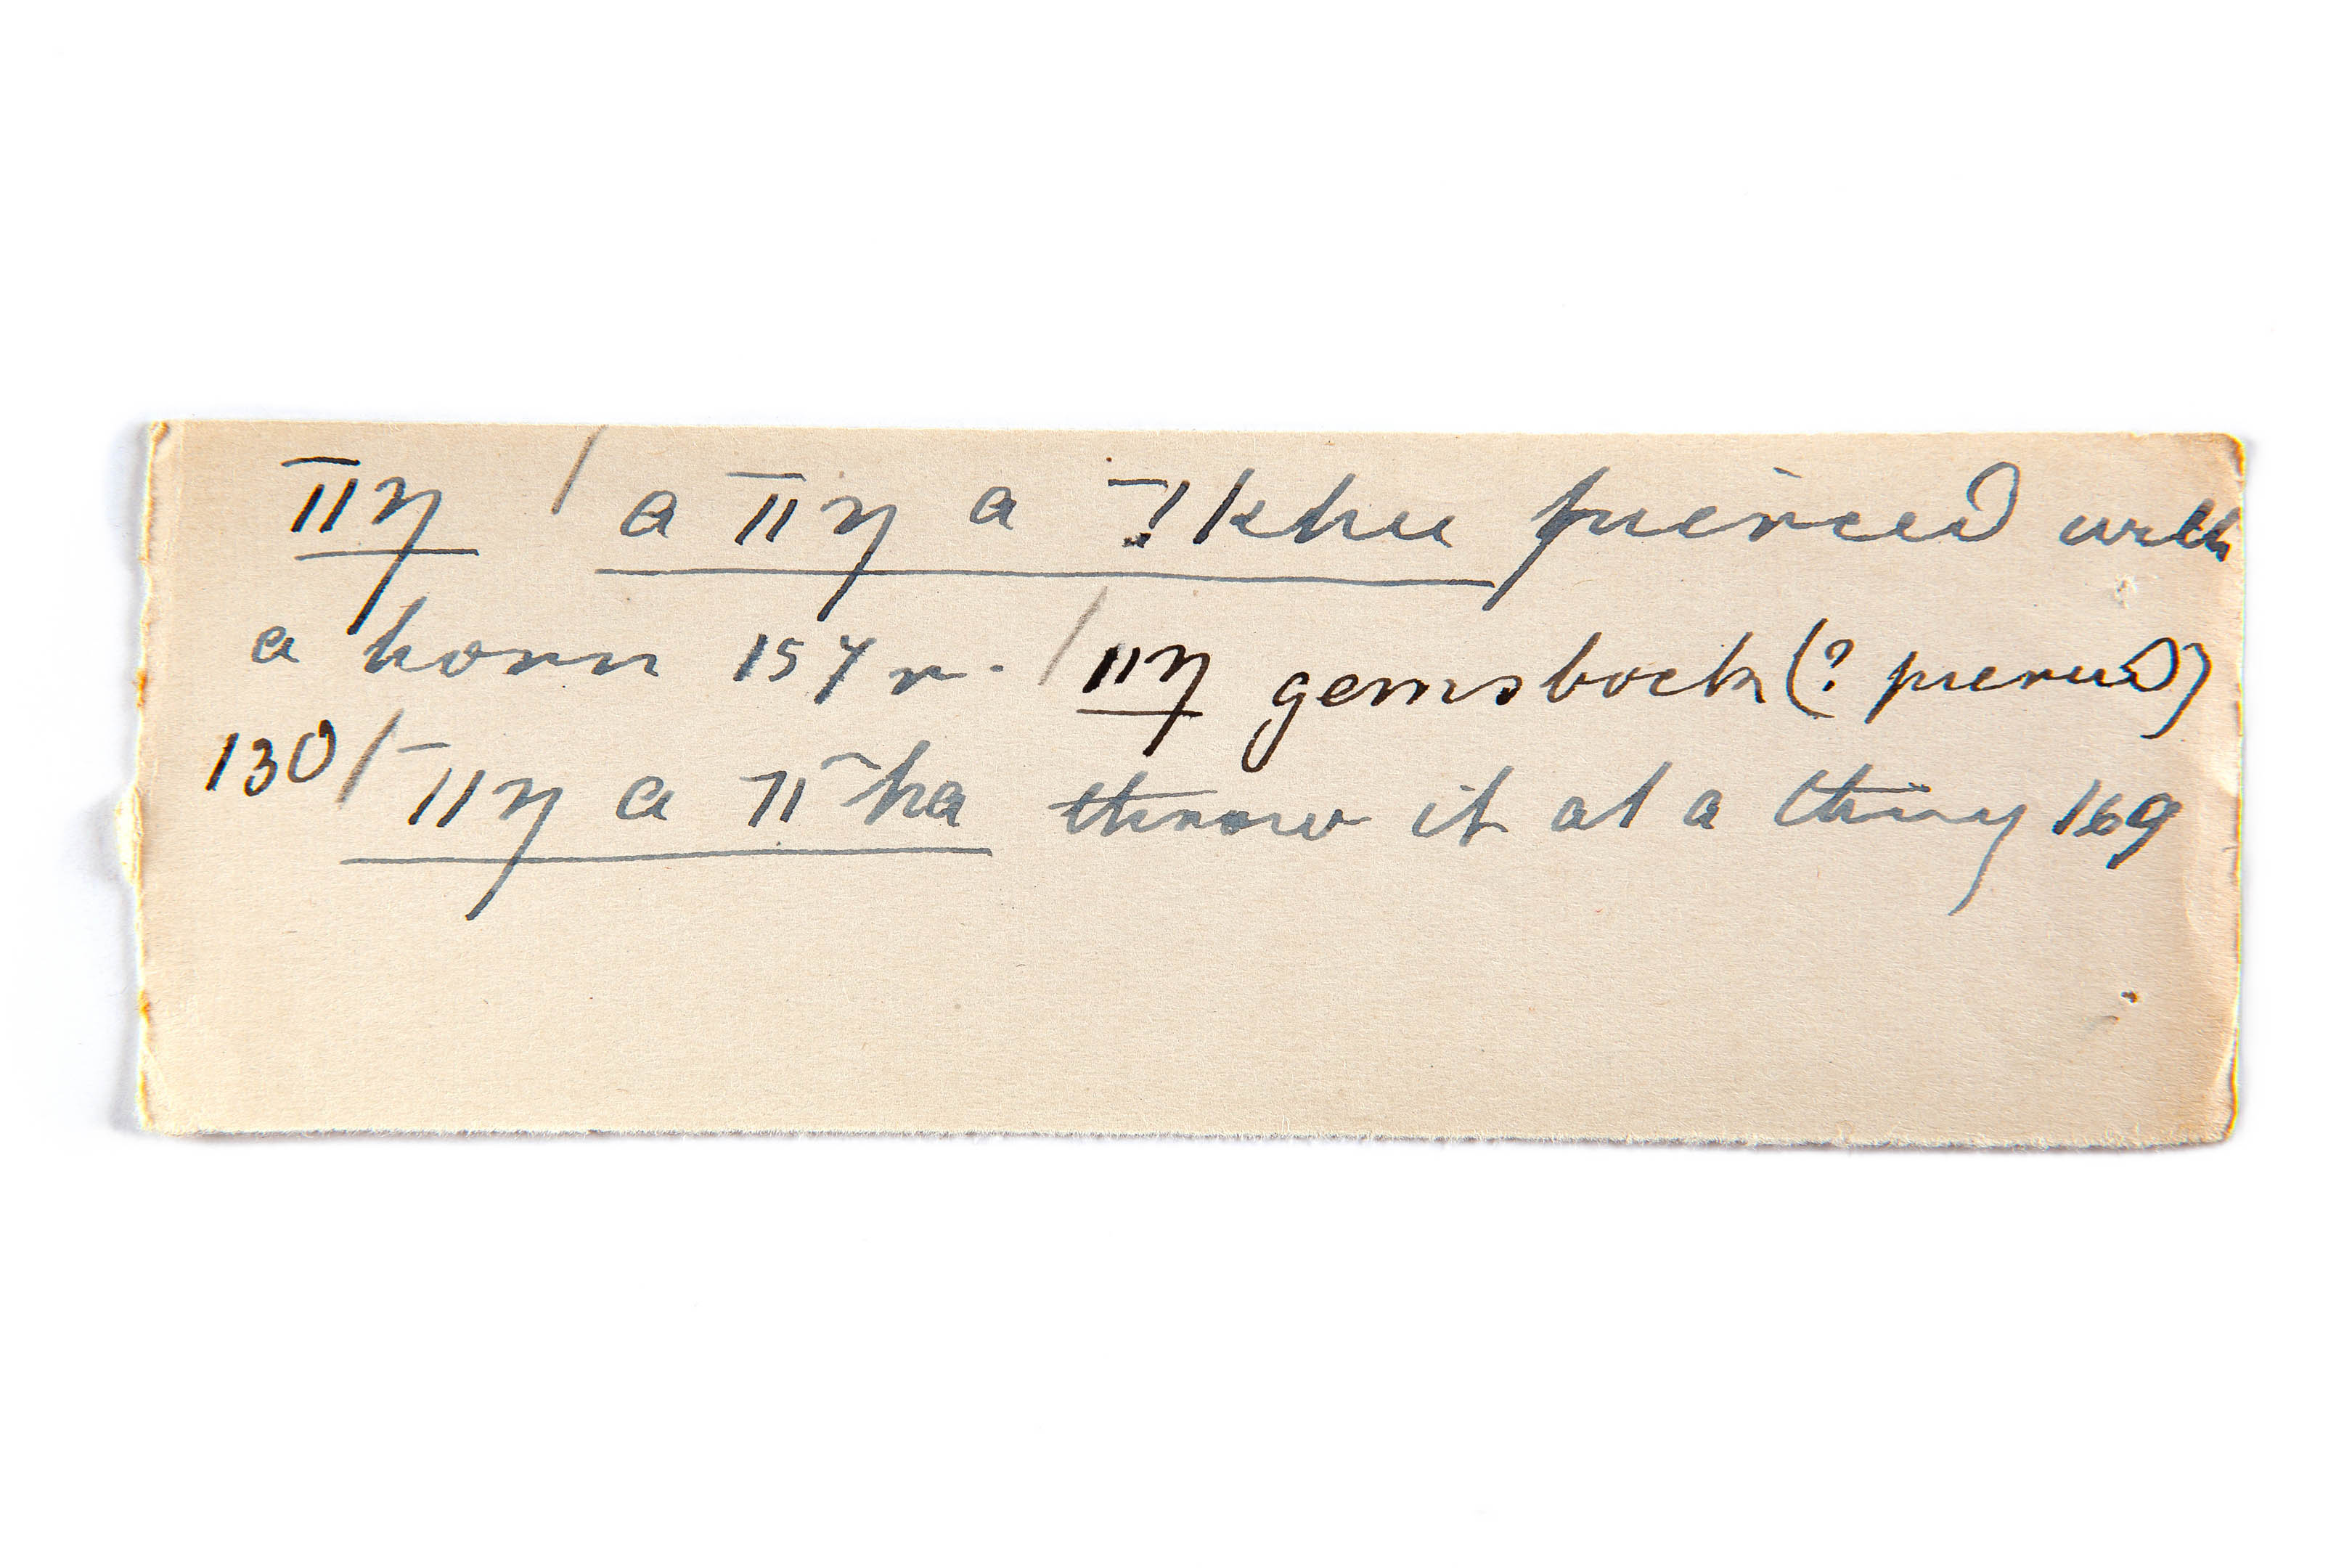 ‾ǁŋ / a ‾ǁŋ a ‾!khu pierced with
a horn 157 r. / ǁŋ gemsbock (? pierced)
130 / ‾ǁŋ a ‾ǁ‾ha throw it at a thing 169